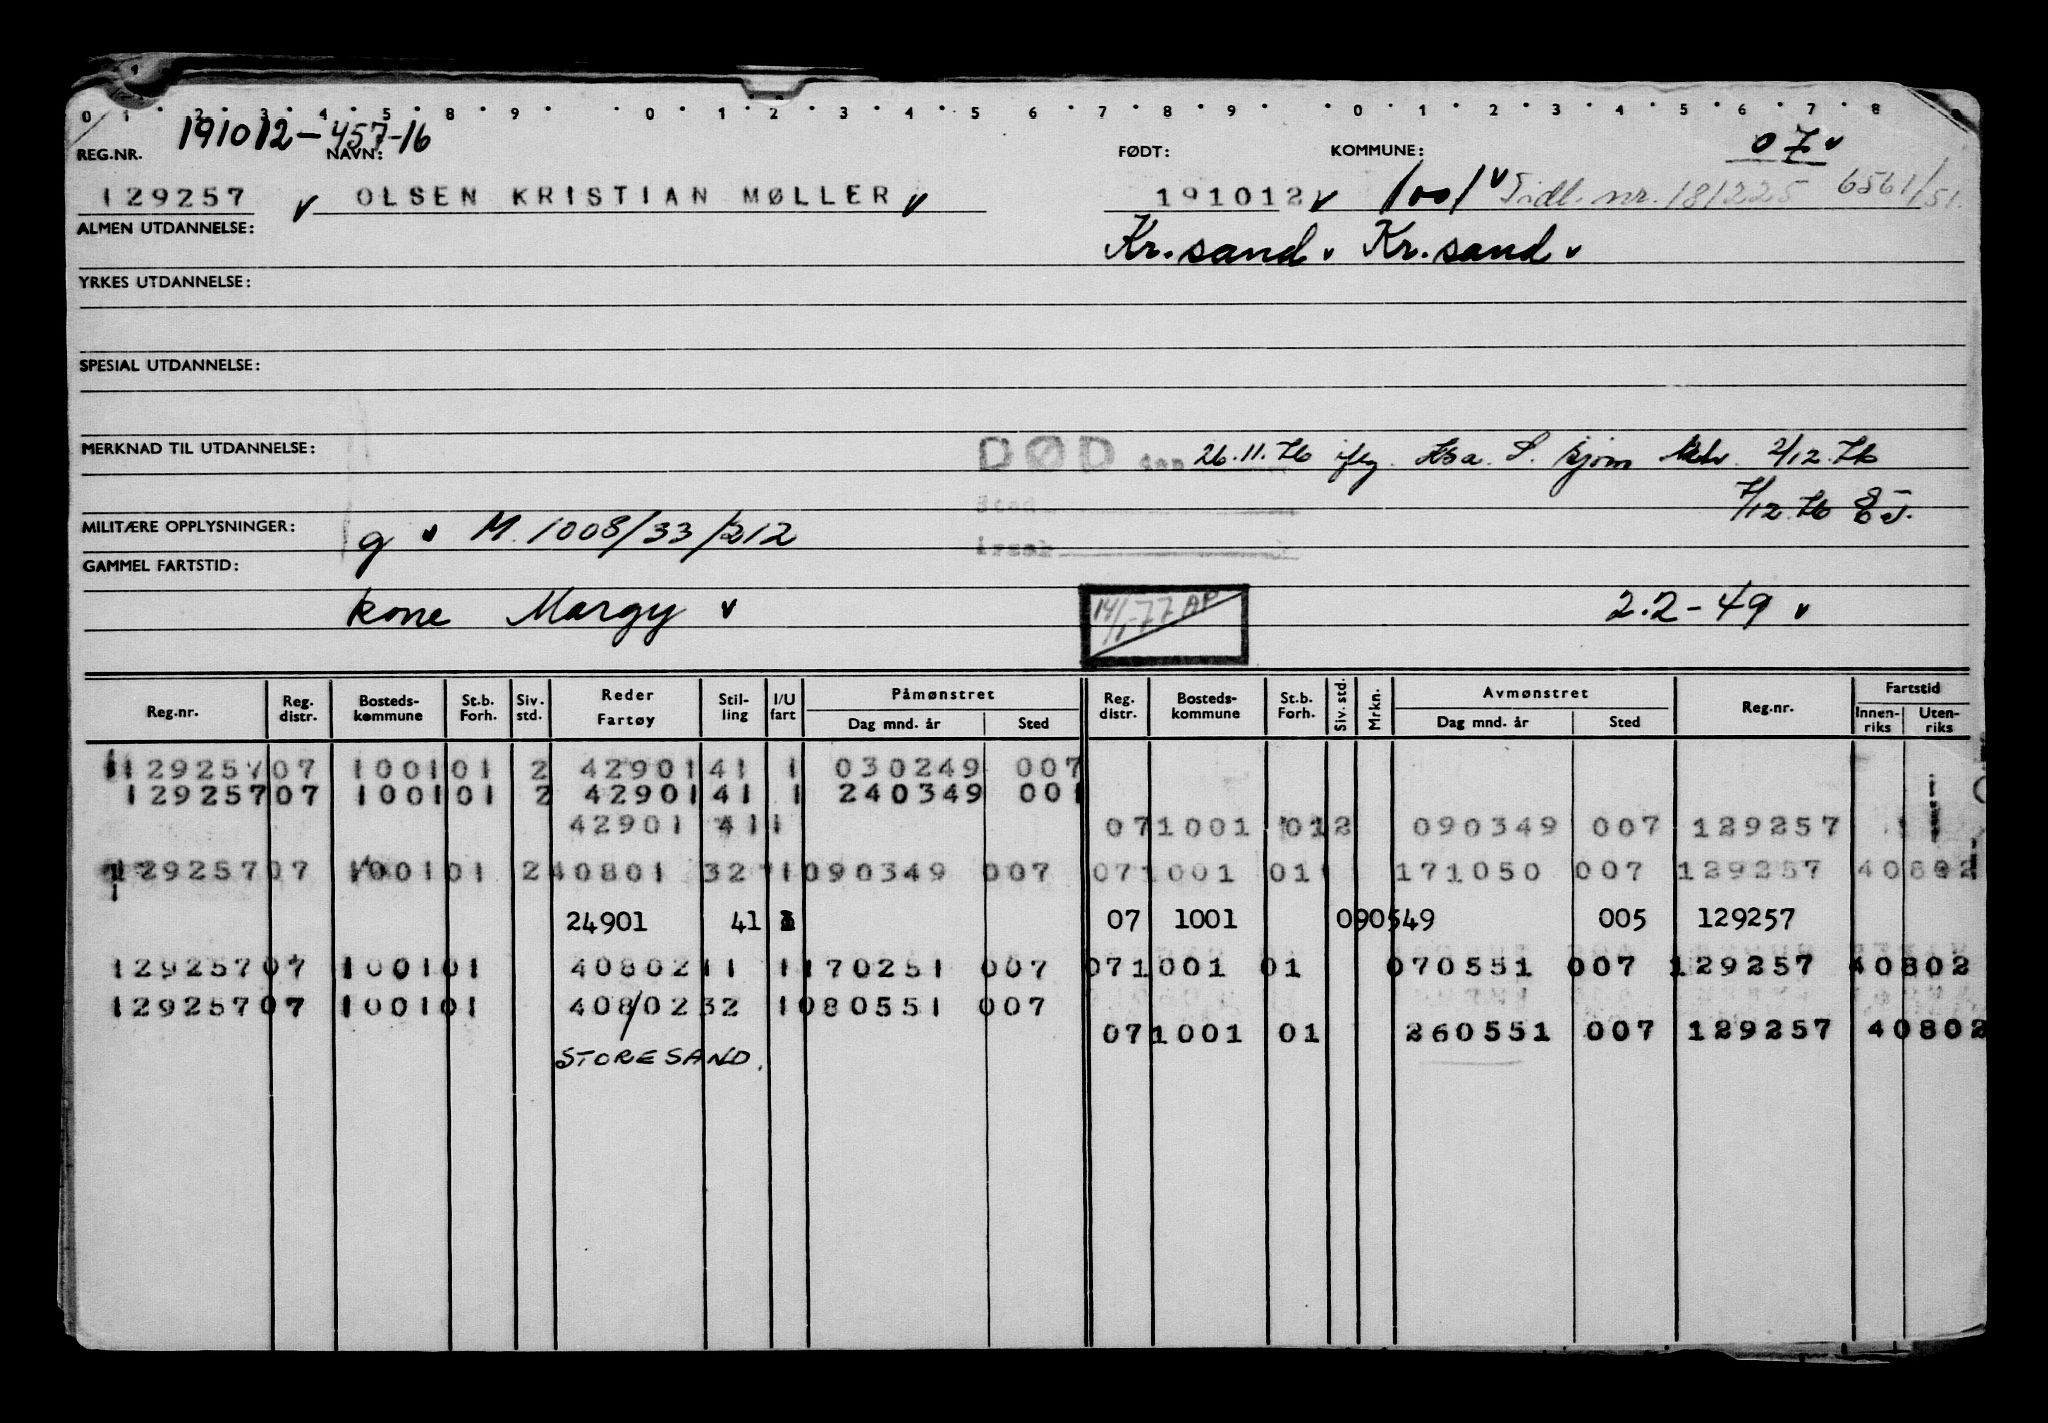 0 1 2 3 4 5 8 9 0 1 2 3 4 5 6 7 8 9 0 1 2 3 4 5 6 7 8
191012-457-16 07
REG.NR. NAVN: FØDT: KOMMUNE:
129257 OLSEN KRISTIAN MØLLER 191012 1001 Tidl. nr. 181225 6561/51.
ALMEN UTDANNELSE: Kr.sand Kr.sand
YRKES UTDANNELSE:
SPESIAL UTDANNELSE:
MERKNAD TIL UTDANNELSE: DØD den 26.11.76 iflg. 2/12.76
Sted
7/12.76
MILITÆRE OPPLYSNINGER: g M. 1008/33/212
årsak
GAMMEL FARTSTID:
kone Margy 14/1-77 AP 2.2-49
Reg.nr. Reg. distr. Bosteds-kommune St.b. Forh. Siv. std. Reder Fartøy Stil-ling I/U fart Påmønstret Dag mnd. år Sted Reg. distr. Bosteds-kommune St.b. Forh. Siv. std. Mrkn. Avmønstret Dag mnd. år Sted Reg.nr. Fartstid Innen-riks Uten-riks
129257 07 1001 01 2 42901 41 1 030249 007
129257 07 1001 01 2 42901 41 1 240349 001
42901 41 1 07 1001 01 2 090349 007 129257
129257 07 1001 01 2 40801 32 1 090349 007 07 1001 01 171050 007 129257 40802
24901 41 07 1001 090549 005 129257
129257 07 1001 01 40802 11 1 170251 007 07 1001 01 070551 007 129257 40802
129257 07 1001 01 408/02 32 1 080551 007
07 1001 01 260551 007 129257 40802
STORESAND.